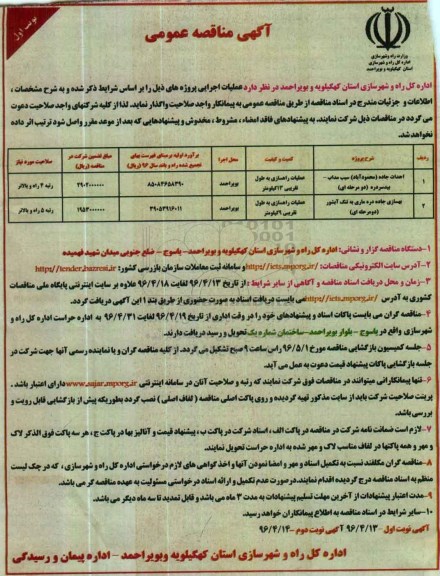 نوبت اول
آگهی مناقصه عمومی
وزارت راه و شهرسازی
اداره کل راه و شهرسازی
استان کهگیلویه و بویراحمد
اداره کل راه و شهرسازی استان کهگیلویه و بویراحمد در نظر دارد عملیات اجرایی پروژه های ذیل را بر اساس شرایط ذکر شده و به شرح مشخصات ،
اطلاعات و جزئیات مندرج در اسناد مناقصه از طریق مناقصه عمومی به پیمانکار واجد صلاحیت واگذار نماید. لذا از کلیه شرکتهای واجد صلاحیت دعوت
می گردد در مناقصات ذیل شرکت نمایند. به پیشنهادهای فاقد امضاء ، مشروط ، مخدوش و پیشنهادهایی که بعد از موعد مقرر واصل شود ترتیب اثر داده
نخواهد شد.
ردیف شرح پروژه کمیت و کیفیت محل اجرا برآورد اولیه برمبنای فهرست بهای تجمیع شده راه و باند سال ۹۶ (ریال) مبلغ تضمین شرکت در مناقصه (ریال) صلاحیت مورد نیاز
۱ احداث جاده (محمودآباد) سیب مذاب - (دو مرحله ای) عملیات راهسازی به طول تقریبی ۱۲کیلومتر بویراحمد ۸۵۰۸۴۶۵۸۳۹۰ ۲۹۰۲۰۰۰۰۰۰ رتبه ۴ راه و بالاتر
۲ بهسازی جاده دره ماری به تنگ آبشور (دومرحله ای) عملیات راهسازی به طول تقریبی ۲کیلومتر بویراحمد ۳۹۰۵۳۹۱۶۰۱۱ ۱۹۵۳۰۰۰۰۰۰ رتبه ۵ راه و بالاتر
۱-دستگاه مناقصه گزار و نشانی: اداره کل راه و شهرسازی استان کهگیلویه و بویراحمد - یاسوج - ضلع جنوبی میدان شهید فهمیده
۲-آدرس سایت الکترونیکی مناقصات: http//iets.mporg.ir/ و سامانه ثبت معاملات سازمان بازرسی کشور: http//tender.bazresi.ir
۳- زمان و محل دریافت اسناد مناقصه و آگاهی از سایر شرایط : از تاریخ ۹۶/۴/۱۳ لغایت ۹۶/۴/۱۸ علاوه بر سایت اینترنتی پایگاه ملی مناقصات
کشوری به آدرس http//iets.mporg.ir/ می بایست دریافت اسناد به صورت حضوری از طریق بند ۱ این آگهی دریافت گردد.
۴- مناقصه گران می بایست پاکات اسناد و پیشنهادهای خود را در وقت اداری از تاریخ ۹۶/۴/۱۹ لغایت ۹۶/۴/۳۱ به اداره حراست اداره کل راه و
شهرسازی واقع در یاسوج - بلوار بویراحمد - ساختمان شماره یک تحویل و رسید دریافت دارند.
۵- جلسه کمیسیون بازگشایی مناقصه مورخ ۹۶/۵/۱ راس ساعت ۹ صبح تشکیل می گردد. از کلیه مناقصه گران و یا نماینده رسمی آنها جهت شرکت در
جلسه بازگشایی پاکات پیشنهاد قیمت دعوت به عمل می آید.
۶-تنها پیمانکارانی میتوانند در مناقصات فوق شرکت نمایند که رتبه و صلاحیت آنان در سامانه اینترنتی www.sajar.mporg.ir دارای اعتبار باشد .
پرینت صلاحیت شرکت باید از سایت مذکور تهیه گردیده و روی پاکت اصلی مناقصه ( لفاف اصلی ) نصب گردد بطوریکه پیش از بازگشایی قابل رویت و
بررسی باشد.
۷-لازم است ضمانت نامه شرکت در مناقصه در پاکت الف ، اسناد شرکت در پاکت ب ، پیشنهاد قیمت و آنالیز بها در پاکت ج ، هر سه پاکت فوق الذکر لاک
و مهر و همه پاکتها در لفاف مناسب لاک و مهر شده به اداره حراست تحویل نمایند.
۸-مناقصه گران مکلفند نسبت به تکمیل اسناد و مهر و امضا نمودن آنها و اخذ گواهی های لازم درخواستی اداره کل راه و شهرسازی ، که در چک لیست
منظم به اسناد مناقصه درج گردیده اقدام نمایند. درصورت عدم تکمیل و ارائه اسناد درخواستی مسئولیت به عهده مناقصه گر می باشد.
۹-مدت اعتبار پیشنهادات از آخرین مهلت تسلیم پیشنهادات به مدت ۳ ماه می باشد و قابل تمدید تا سه ماه دیگر می باشد.
۱۰-سایر شرایط در اسناد مناقصه به اطلاع پیمانکاران خواهد رسید.
آگهی نوبت اول - ۹۶/۴/۱۳ آگهی نوبت دوم -۹۶/۴/۱۴
اداره کل راه و شهرسازی استان کهگیلویه وبویراحمد - اداره پیمان و رسیدگی